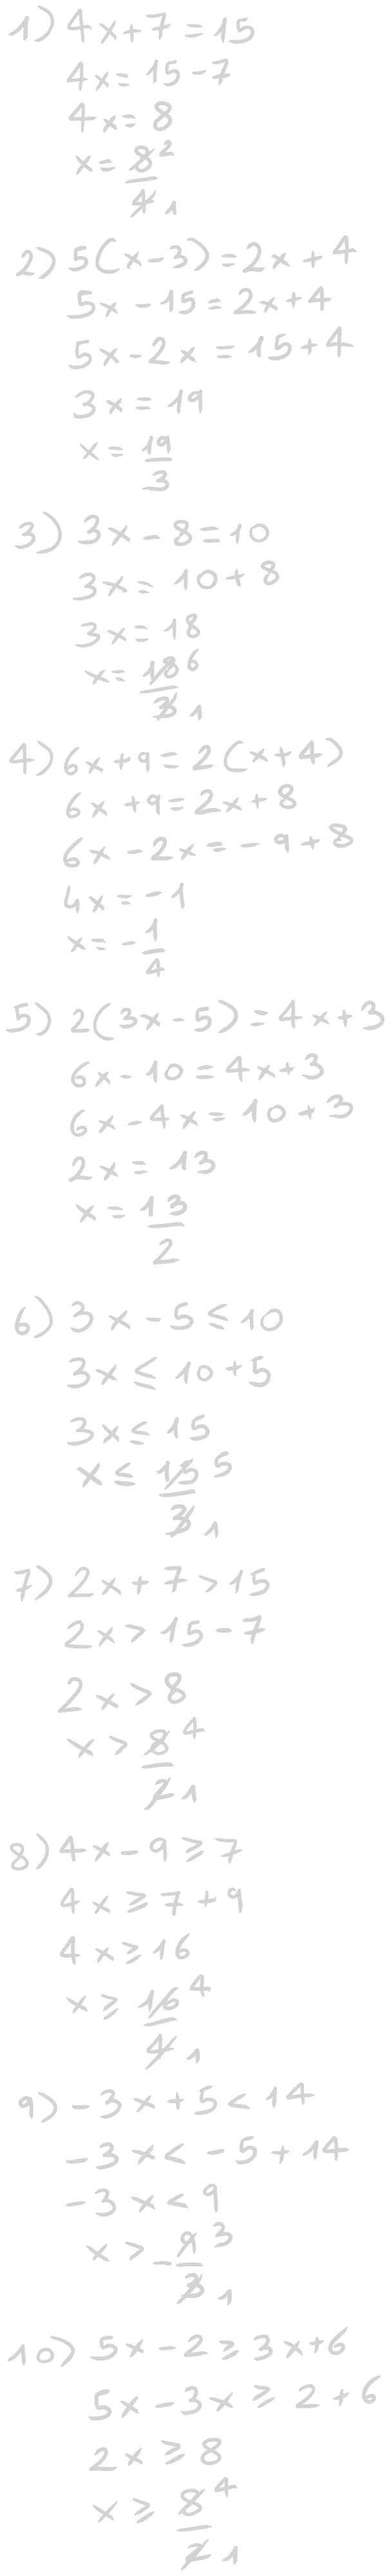 1) 4x+7=15
4x=15-7
4x=8
x=8/4 2 1
2) 5(x-3)=2x+4
5x-15=2x+4
5x-2x=15+4
3x=19
x=19/3
3) 3x-8=10
3x=10+8
3x=18
x=18/3 6 1
4) 6x+9=2(x+4)
6x+9=2x+8
6x-2x=-9+8
4x=-1
x=-1/4
5) 2(3x-5)=4x+3
6x-10=4x+3
6x-4x=10+3
2x=13
x=13/2
6) 3x-5≤10
3x≤10+5
3x≤15
x≤15/3 5 1
7) 2x+7>15
2x>15-7
2x>8
x>8/2 4 1
8) 4x-9≥7
4x≥7+9
4x≥16
x≥16/4 4 1
9) -3x+5<14
-3x<-5+14
-3x<9
x>-9/3 3 1
10) 5x-2≥3x+6
5x-3x≥2+6
2x≥8
x≥8/2 4 1